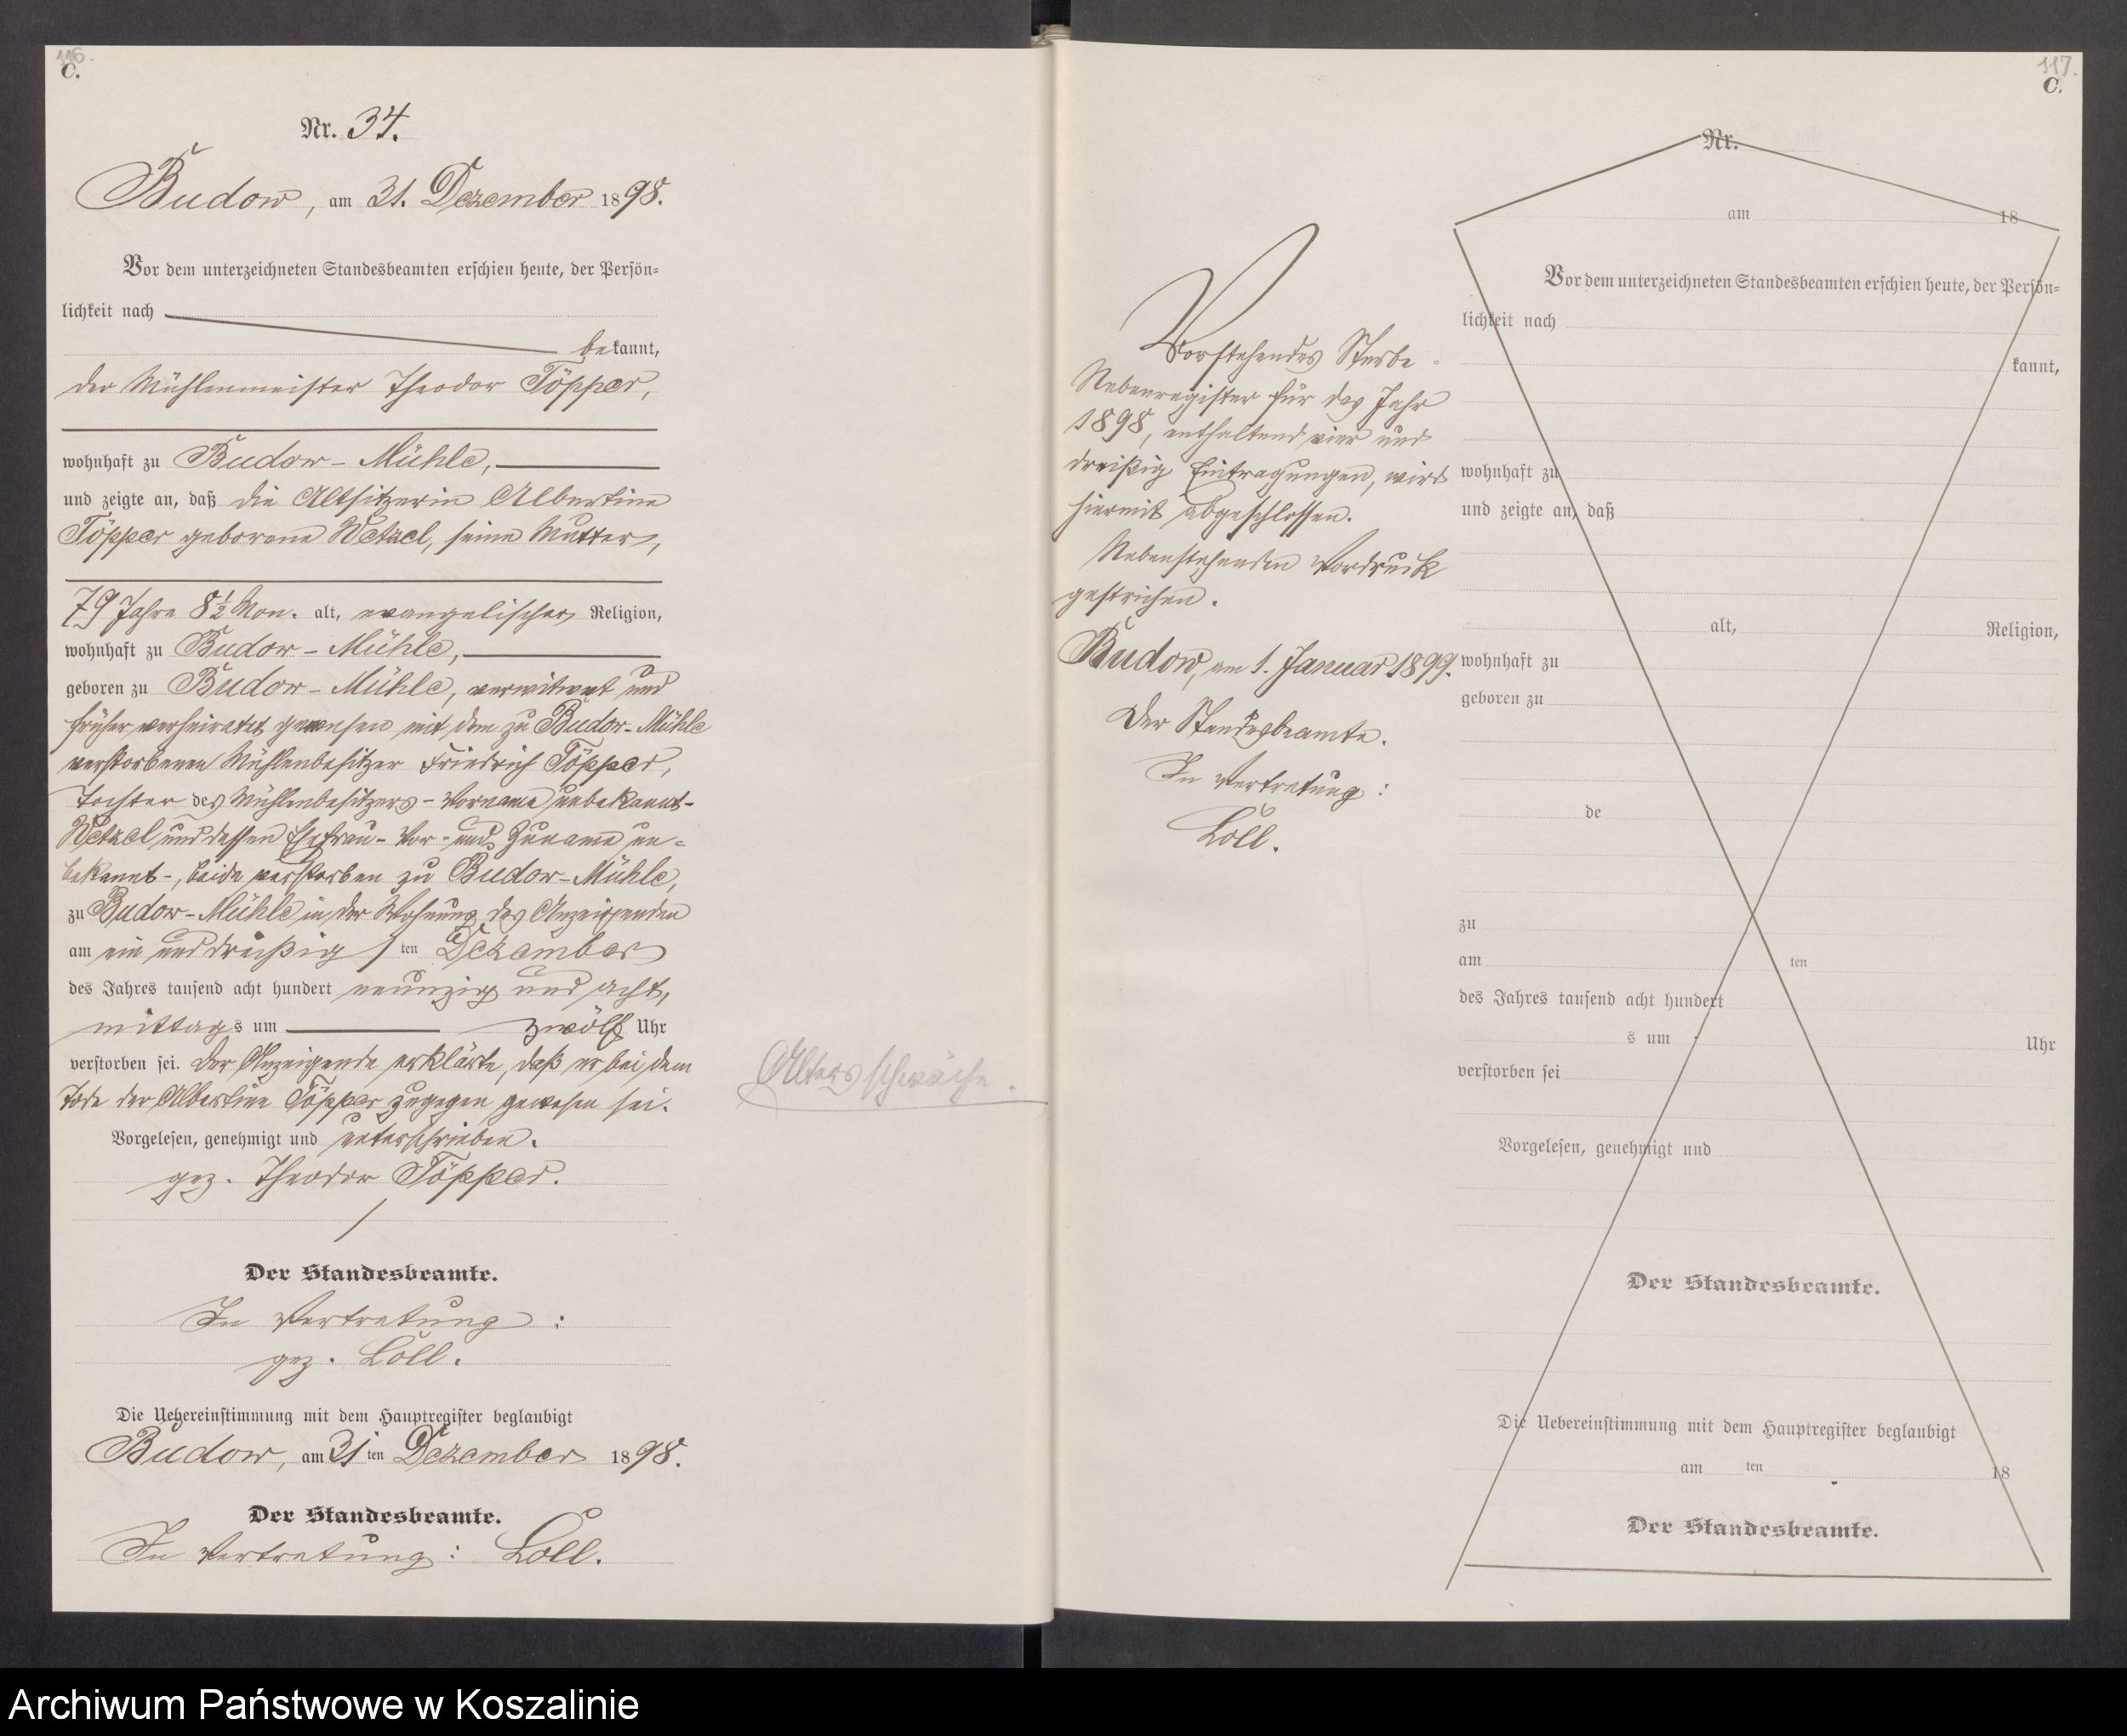 116.
C.
Nr. 34.
Budow, am 31. Dezember 1898.
Vor dem unterzeichneten Standesbeamten erschien heute, der Persön=
lichkeit nach
bekannt,
der Mühlenmeister Theodor Töpper,
wohnhaft zu Budow-Mühle,
und zeigte an, daß die Altsitzerin Albertine
Töpper geborene Wetzel, seine Mutter,
79 Jahre 8½ Mon. alt, evangelischer Religion,
wohnhaft zu Budow-Mühle,
geboren zu Budow-Mühle, verwitwet und
früher verheiratet gewesen mit dem zu Budow-Mühle
verstorbenen Mühlenbesitzer Friedrich Töpper,
Tochter des Mühlenbesitzers - Vorname unbekannt -
Wetzel und dessen Ehefrau - Vor- und Zuname un=
bekannt -, beide verstorben zu Budow-Mühle,
zu Budow-Mühle in der Wohnung des Anzeigenden
am ein und dreißig ten Dezember
des Jahres tausend acht hundert neunzig und acht,
mittags um zwölf Uhr
verstorben sei. Der Anzeigende erklärte, daß er bei dem
Tode der Albertine Töpper zugegen gewesen sei.
Vorgelesen, genehmigt und unterschrieben.
gez. Theodor Töpper.
Der Standesbeamte.
In Vertretung:
gez. Loll.
Die Uebereinstimmung mit dem Hauptregister beglaubigt
Budow, am 31 ten Dezember 1898.
Der Standesbeamte.
In Vertretung: Loll.
Altersschwäche.
117.
C.
Vorstehendes Sterbe-
Nebenregister für das Jahr
1898, enthaltend vier und
dreißig Eintragungen, wird
hiermit abgeschlossen.
Nebenstehenden Vordruck
gestrichen.
Budow, am 1. Januar 1899.
Der Standesbeamte.
In Vertretung:
Loll.
Nr.
am 18
Vor dem unterzeichneten Standesbeamten erschien heute, der Persön=
lichkeit nach
kannt,
wohnhaft zu
und zeigte an, daß
alt, Religion,
wohnhaft zu
geboren zu
de
zu
am ten
des Jahres tausend acht hundert
s um Uhr
verstorben sei
Vorgelesen, genehmigt und
Der Standesbeamte.
Die Uebereinstimmung mit dem Hauptregister beglaubigt
am ten 18
Der Standesbeamte.
Archiwum Państwowe w Koszalinie